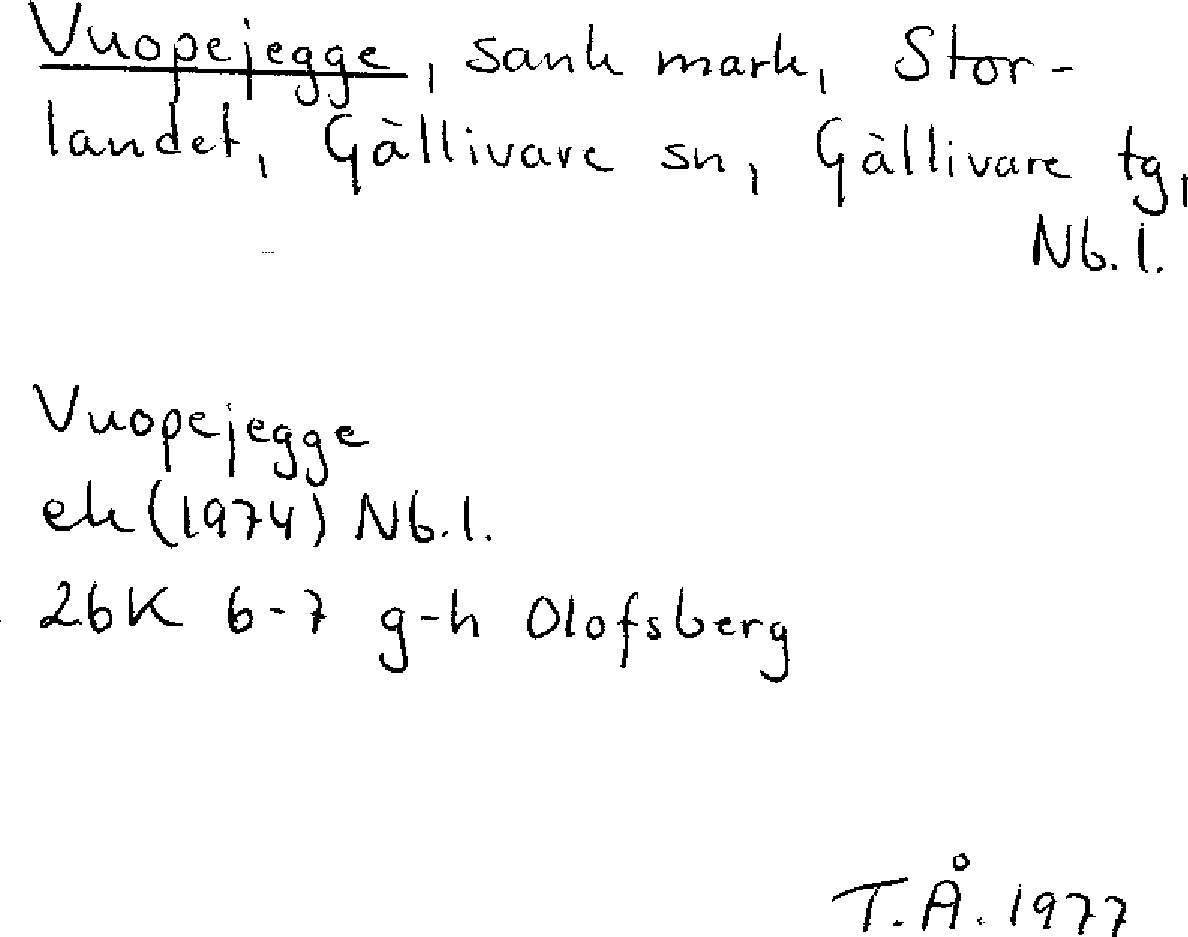 Vuopejegge, sank mark, Stor-
landet, Gällivare sn, Gällivare tg,
Nb.l.
Vuopejegge
ek (1974) Nb.l.
26K 6-7 g-h Olofsberg
T.Å. 1977